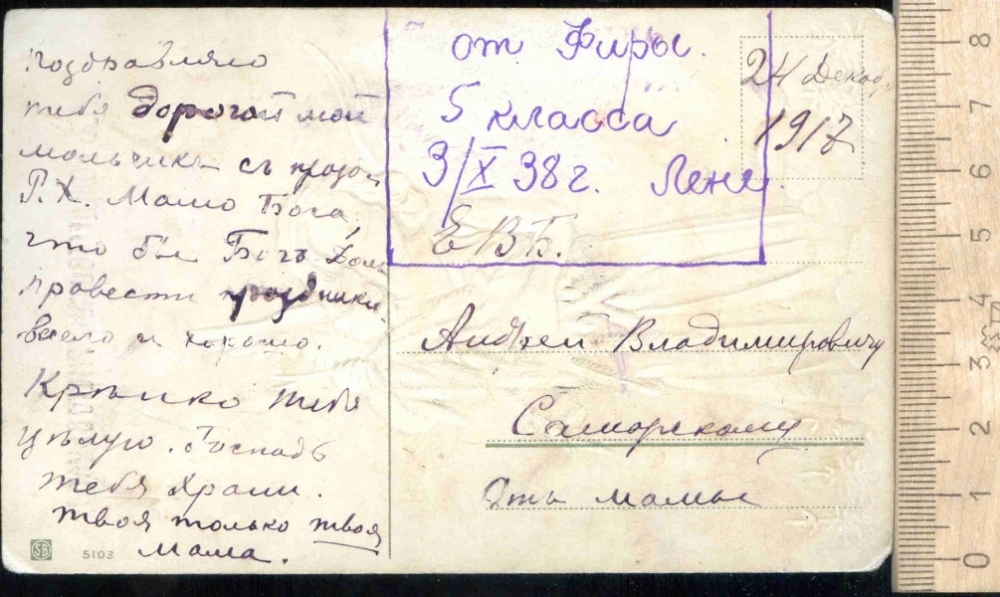 Поздравляю
тебя дорогой мой
мальчикъ съ празд
Р.Х. Мамо Бога
что бы Богъ Далъ
провести праздники
весело и хорошо.
Крѣпко тебя
цѣлую. Господь
тебя Храни.
твоя только твоя
мама.
SB 5103
от Фиры.
5 класса
3/X 38 г. Лене
ЕВБ.
24 Декаб
1917
Андрею Владимировичу
Самарскому
Отъ мамы
8
7
6
5
4
3
2
1
0